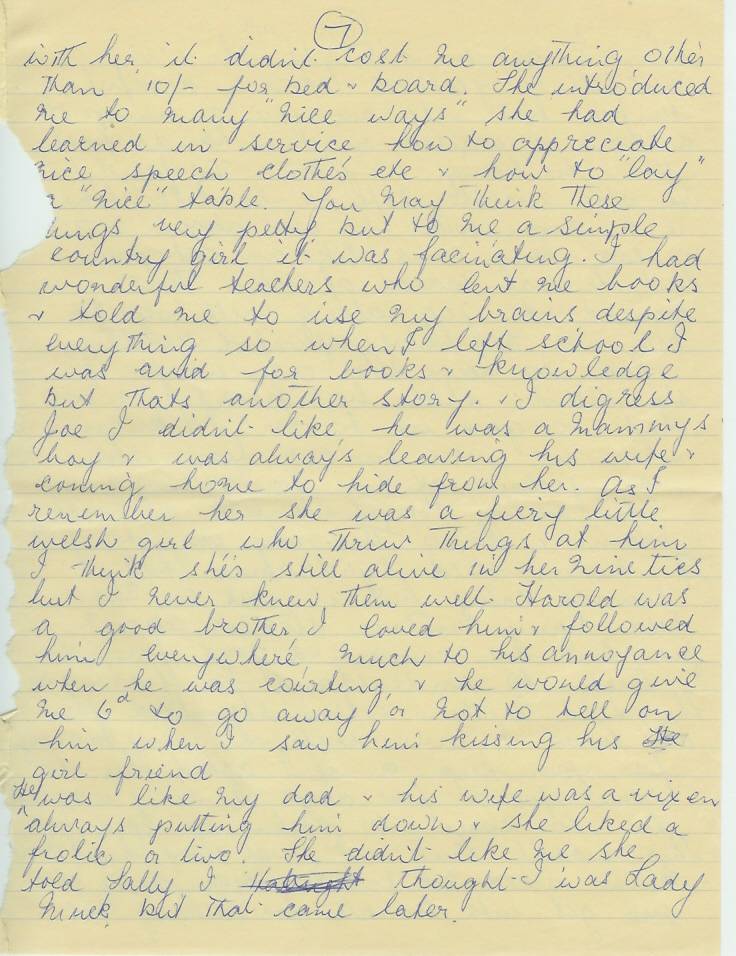 7
with her it didn't cost me anything other
than 10/- for bed & board. She introduced
me to many "nice ways" she had
learned in service how to appreciate
nice speech clothes etc & how to "lay"
a "nice" table. You may think these
ings very petty but to me a simple
country girl it was facinating. I had
wonderful teachers who lent me books
& told me to use my brains despite
everything so when I left school I
was avid for books & knowledge
but thats another story. & I digress
Joe I didn't like he was a Mammys
boy & was always leaving his wife &
coming home to hide from her. As I
remember her she was a fiery little
welsh girl who threw things at him
I think she's still alive in her nineties
but I never knew them well. Harold was
a good brother, I loved him & followed
him everywhere, much to his annoyance
when he was courting, & he would give
me 6d to go away or not to tell on
him when I saw him kissing his He
girl friend
He was like my dad & his wife was a vixen
always putting him down & she liked a
frolic or two. She didn't like me she
told Sally I thought I was Lady
Muck but that came later.